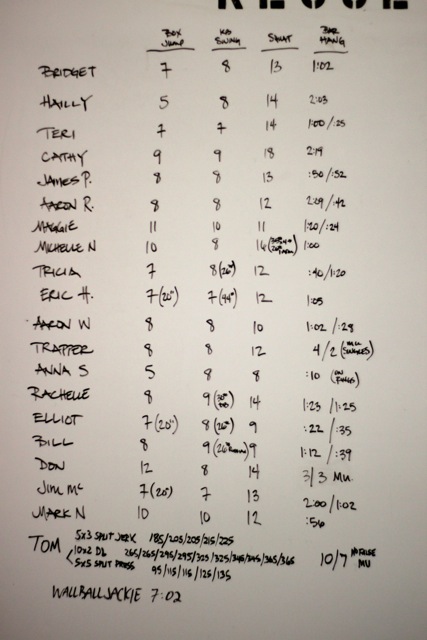 BOX JUMP KB SWING SQUAT BAR HANG
BRIDGET 7 8 13 1:02
HAILLY 5 8 14 2:03
TERI 7 7 14 1:00/:25
CATHY 9 9 18 2:19
JAMES P. 8 8 13 :50/:52
AARON R. 8 8 12 2:29/:42
MAGGIE 11 10 11 1:20/:24
MICHELLE N 10 8 16 1:00
TRICIA 7 8(26#) 12 :40/1:20
ERIC H. 7(20") 7(44#) 12 1:05
AARON W 8 8 10 1:02/:28
TRAPPER 8 8 12 4/2 (MU SINGLES)
ANNA S 5 8 8 :10 (ON RINGS)
RACHELLE 8 9 14 1:23/1:25
ELLIOT 7(20") 8(26#) 9 :22/:35
BILL 8 9 9 1:12/:39
DON 12 8 14 3/3 MU.
JIM MC 7(20") 7 13 2:00/1:02
MARK N 10 10 12 :56
TOM 5x3 SPLIT JERK 185/205/205/215/225
10x2 DL 265/265/295/295/325/325/345/345/365/365 10/7 MU
5x5 SPLIT PRESS 95/115/115/125/135
WALLBALL JACKIE 7:02